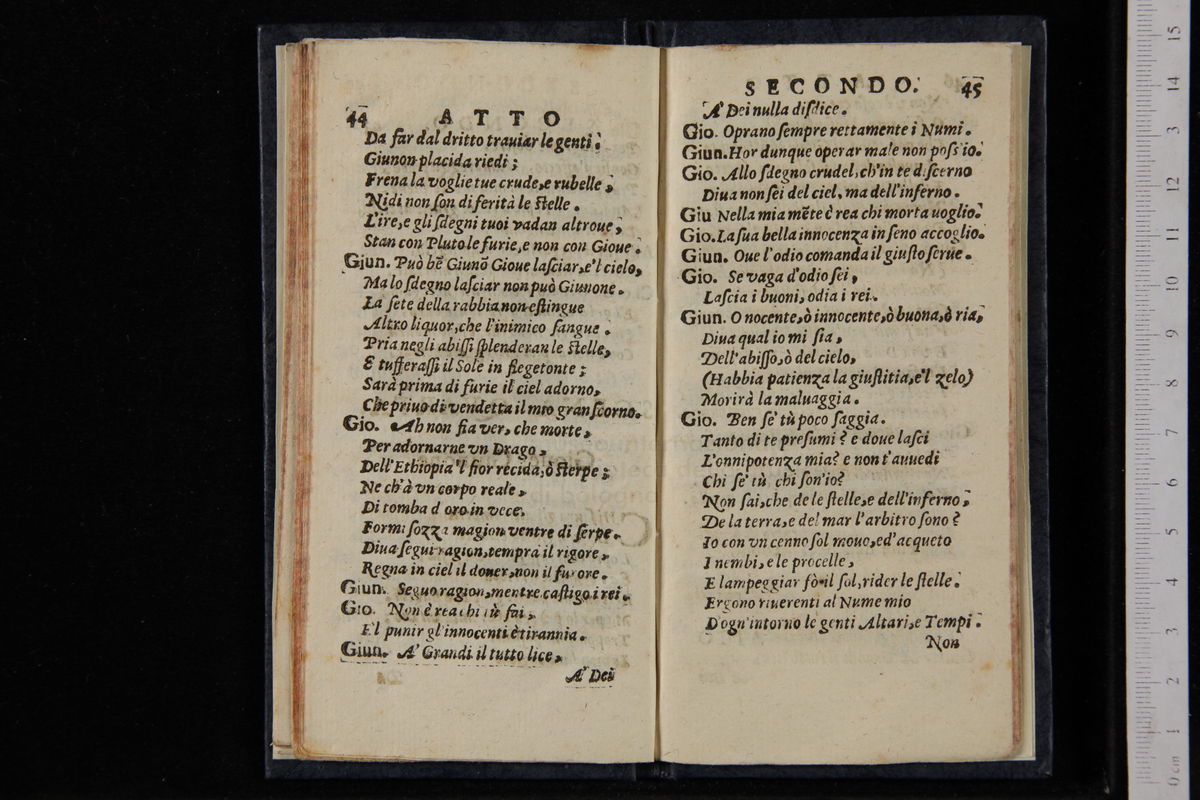 44 ATTO
Da far dal dritto trauiar le genti.
Giunon placida riedi;
Frena la voglie tue crude,e rubelle,
Nidi non son di ferità le stelle.
L'ire,e gli sdegni tuoi vadan altroue,
Stan con Pluto le furie,e non con Gioue.
Giun. Può bẽ Giunõ Gioue lasciar,e'l cielo,
Ma lo sdegno lasciar non può Giunone.
La sete della rabbia non estingue
Altro liquor,che l'inimico sangue.
Pria negli abissi splenderan le stelle,
E tufferassi il Sole in flegetonte;
Sarà prima di furie il ciel adorno,
Che priuo di vendetta il mio gran scorno.
Gio. Ah non fia ver, che morte,
Per adornarne vn Drago,
Dell'Ethiopia 'l fior recida,ò sterpe;
Ne ch'à vn corpo reale,
Di tomba d'oro in vece,
Formi sozza magion ventre di serpe.
Diua segui ragion,tempra il rigore,
Regna in ciel il douer,non il furore.
Giun. Seguo ragion,mentre castigo i rei.
Gio. Non è rea chi tù fai,
E'l punir gl'innocenti è tirannia.
Giun. A' Grandi il tutto lice,
A' Dei
SECONDO. 45
A' Dei nulla disdice.
Gio. Oprano sempre rettamente i Numi.
Giun. Hor dunque operar male non poss'io.
Gio. Allo sdegno crudel,ch'in te discerno
Diua non sei del ciel, ma dell'inferno.
Giu Nella mia mẽte è rea chi morta uoglio.
Gio. La sua bella innocenza in seno accoglio.
Giun. Oue l'odio comanda il giusto serue.
Gio. Se vaga d'odio sei,
Lascia i buoni, odia i rei.
Giun. O nocente,ò innocente,ò buona,ò ria,
Diua qual io mi sia,
Dell'abisso,ò del cielo,
(Habbia patienza la giustitia,e'l zelo)
Morirà la maluaggia.
Gio. Ben se' tù poco saggia.
Tanto di te presumi? e doue lasci
L'onnipotenza mia? e non t'auuedi
Chi se' tù, chi son'io?
Non sai,che de le stelle,e dell'inferno,
De la terra,e del mar l'arbitro sono?
Io con vn cenno sol mouo,ed'acqueto
I nembi, e le procelle,
E lampeggiar fò il sol,rider le stelle.
Ergono riuerenti al Nume mio
D'ogn'intorno le genti Altari,e Tempi.
Non